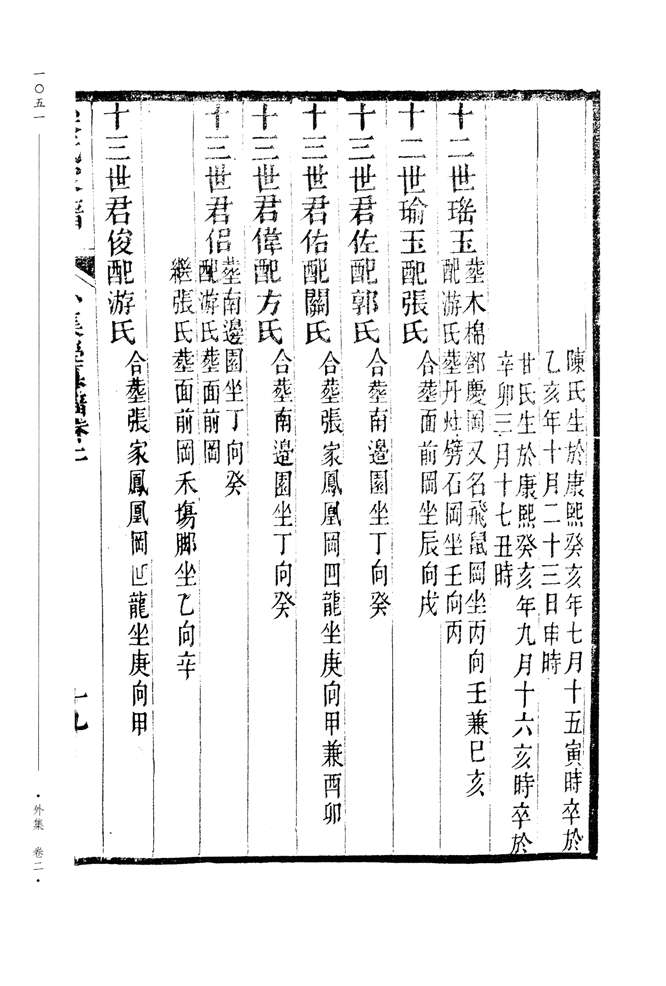 陳氏生於康熙癸亥年七月十五寅時卒於
乙亥年十月二十三日申時
甘氏生於康熙癸亥年九月十六亥時卒於
辛卯三月十七丑時
十二世瑤玉葬木棉鄧慶岡又名飛鼠岡坐丙向壬兼巳亥
配游氏葬丹灶劈石岡坐壬向丙
十二世瑜玉配張氏合葬面前岡坐辰向戌
十三世君佐配郭氏合葬南邉園坐丁向癸
十三世君佑配關氏合葬張家鳳凰岡四龍坐庚向甲兼酉卯
十三世君偉配方氏合葬南邉園坐丁向癸
十三世君侣葬南邉園坐丁向癸
配游氏葬面前岡
繼張氏葬面前岡禾塲脚坐乙向辛
十三世君俊配游氏合葬張家鳳凰岡龍坐庚向甲
十九
一〇五一
·外集 卷二·